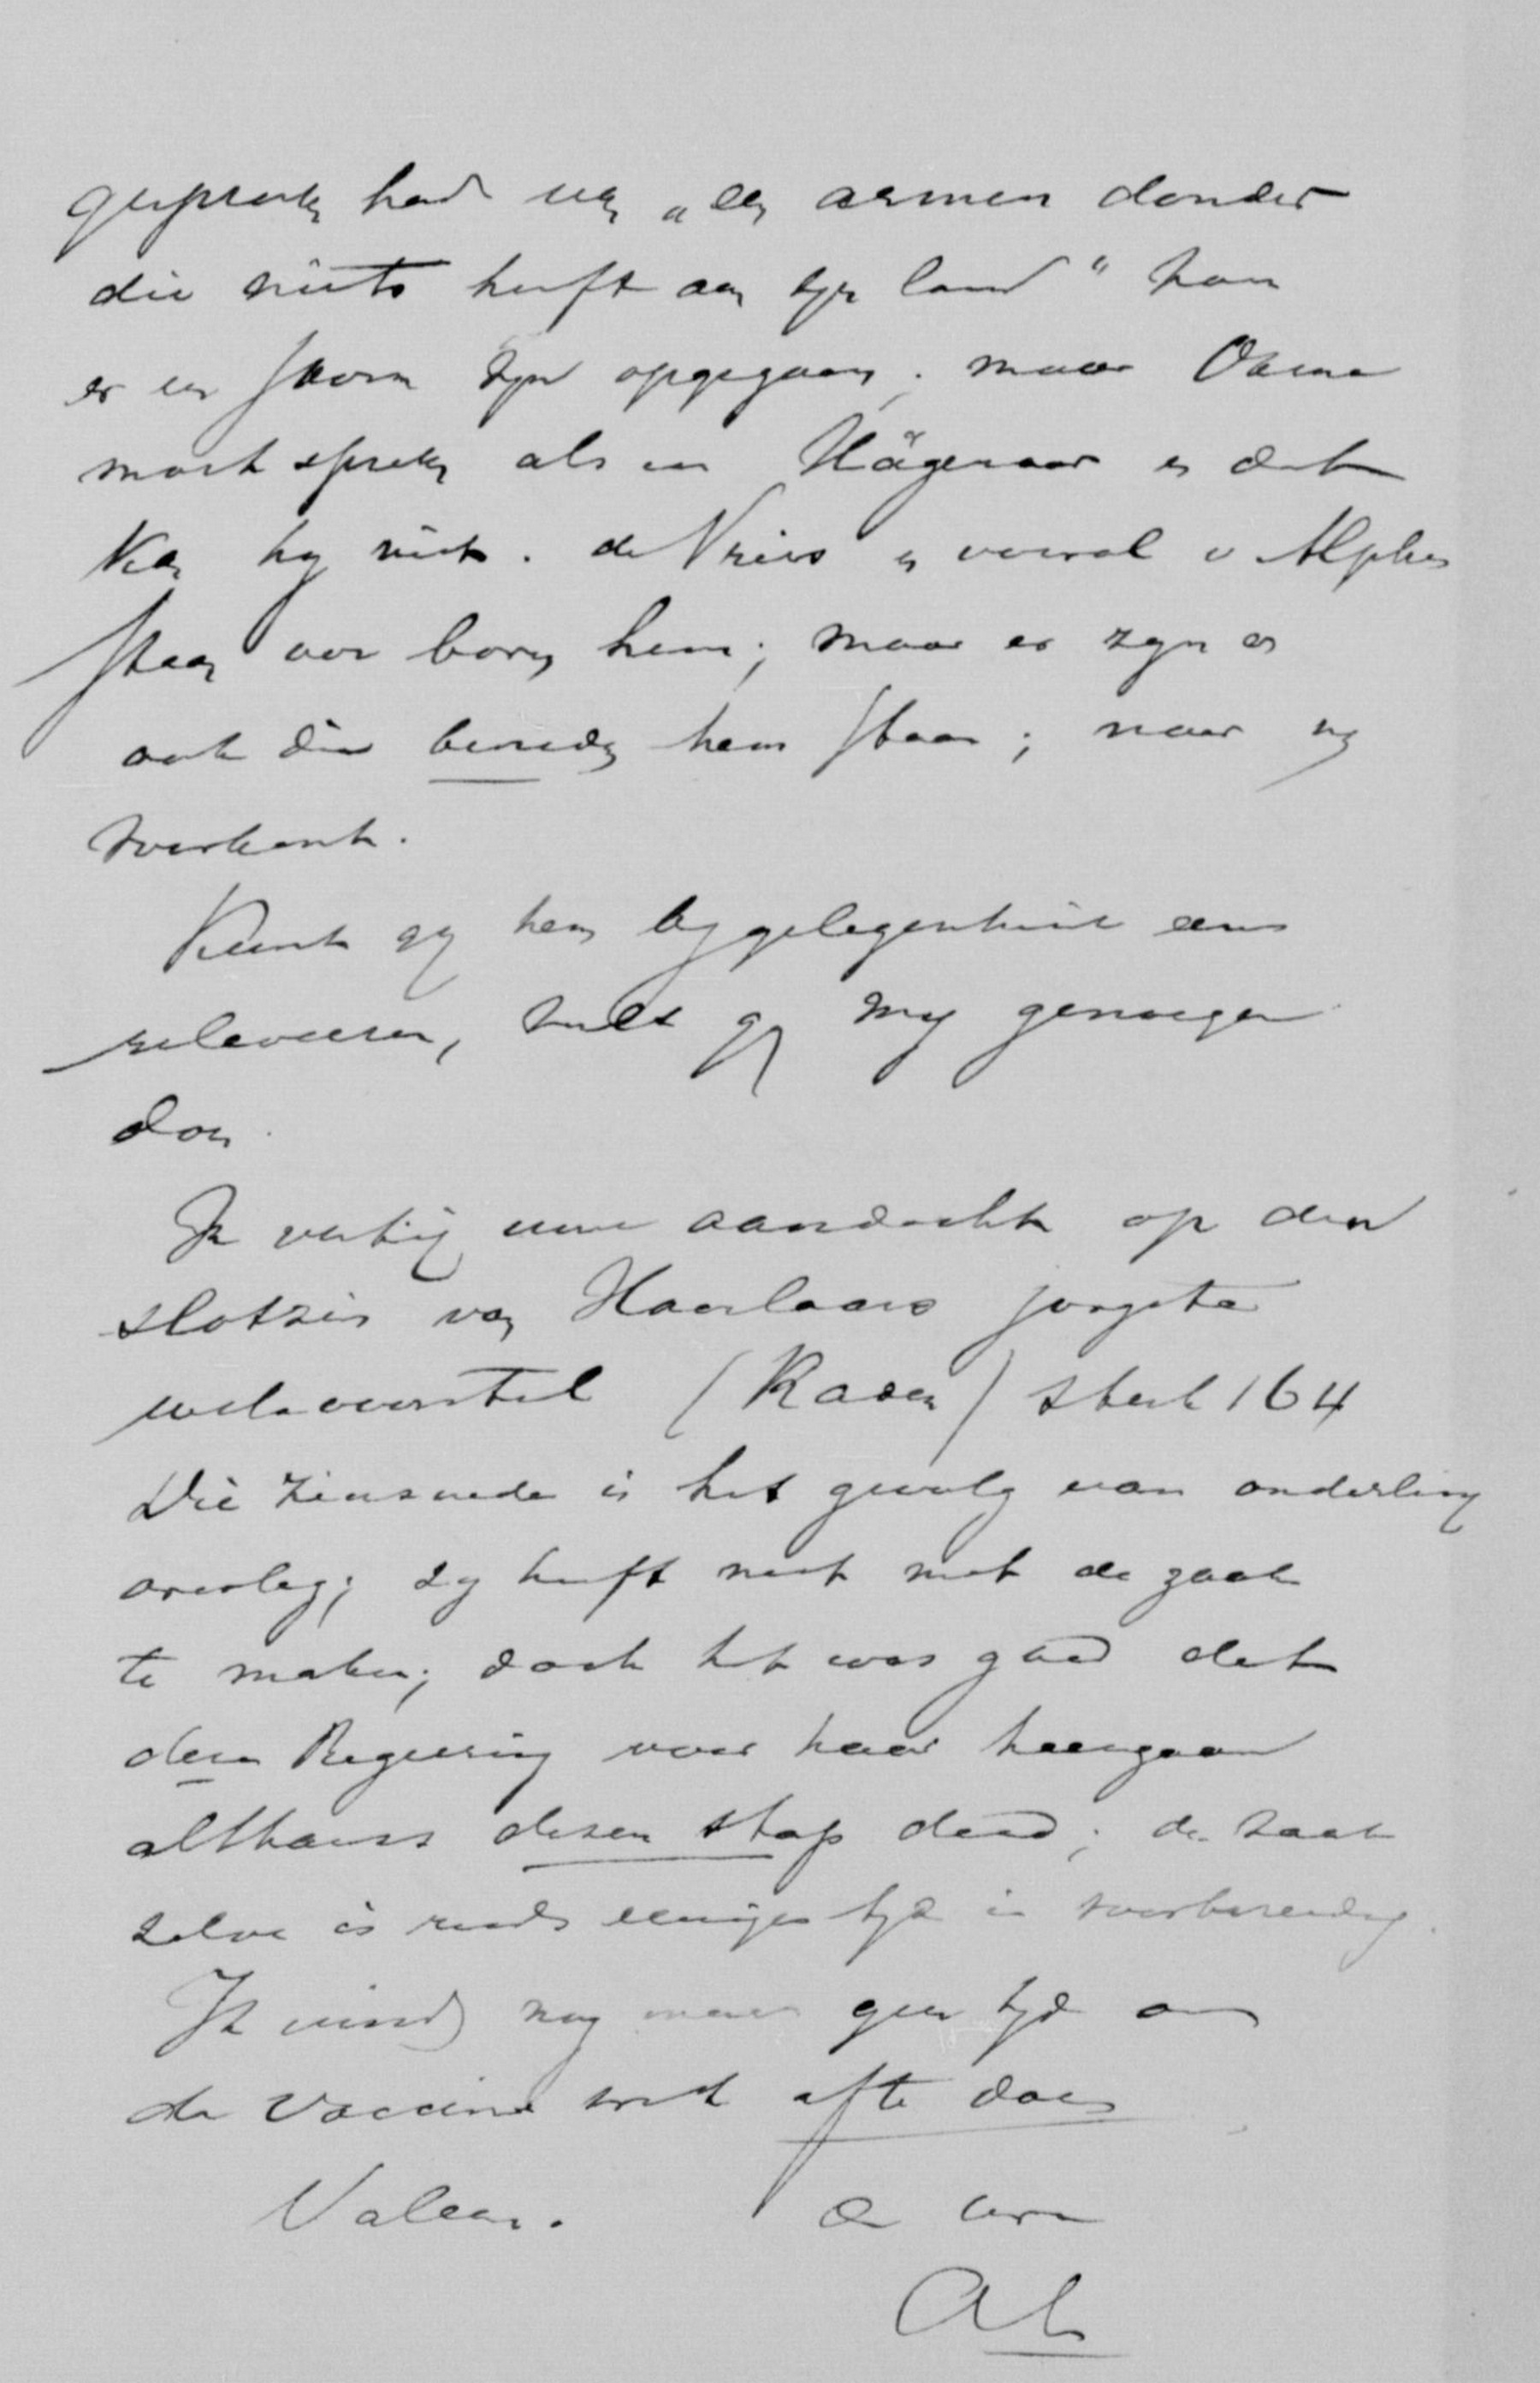 gesproken had van „een armen donder
die niets heeft aan zyn land" kon
er een storm zyn opgegaan; maar
moet spreken als een Hägenaar en dat
kan hy niet. de Vries en vooral v Alphen
staan ver boven hem; maar er zyn er
ook die beneden hem staan; naar my
voorkomt.
Kunt gy hem by gelegenheid eens
releveeren, zult gy my genoegen
doen.
Ik vestig uwe aandacht op den
slotzin van Haarlaars jongste
wetsvoorstel (Raden) stuk 164
Die zinsnede is het gevolg van onderling
overleg; zy heeft niet met de zaak
te maken; doch het was goed dat
deze Regeering voor haar heengaan
althans dezen stap deed; de zaak
zelve is reeds eenigen tyd in voorbereiding.
Ik vind nog maar geen tyd om
de Vaccine wet af te doen
Valeas. de uwe